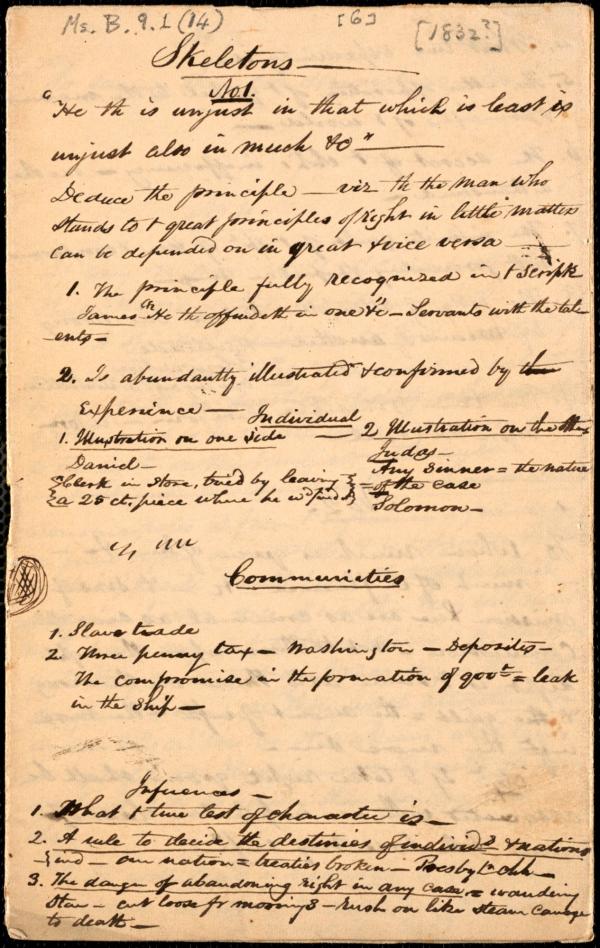 Ms. B. 9.1 (14) [6] [1832?]
Skeletons —
No 1.
"He th is unjust in that which is least is
unjust also in much &c" —
Deduce the principle — viz th the man who
stands to t great principles of right in little matters
can be depended on in great & vice versa —
1. The principle fully recognized in t Script
James "He th offendeth in one &c" — Servants with the tal-
ents —
2. Is abundantly illustrated & confirmed by the
Experience —
Individual
1. Illustration on one side
Daniel —
Clerk in store, tried by leaving
a 25 ct. piece where he wd find it
2 Illustration on the other
Judas —
Any Sinner = the nature
= of the case
Solomon —
Communities
1. Slave trade
2. Three penny tax — Washington — Deposites —
The compromise in the formation of govt = leak
in the Ship —
Inferences —
1. What t true test of character is —
2. A rule to decide the destinies of individs & nations
ind — our nation = treaties broken — Presby Chh —
3. The danger of abandoning right in any case = wandering
Star — cut loose fr moorings — Rush on like steam Carriage
to death —